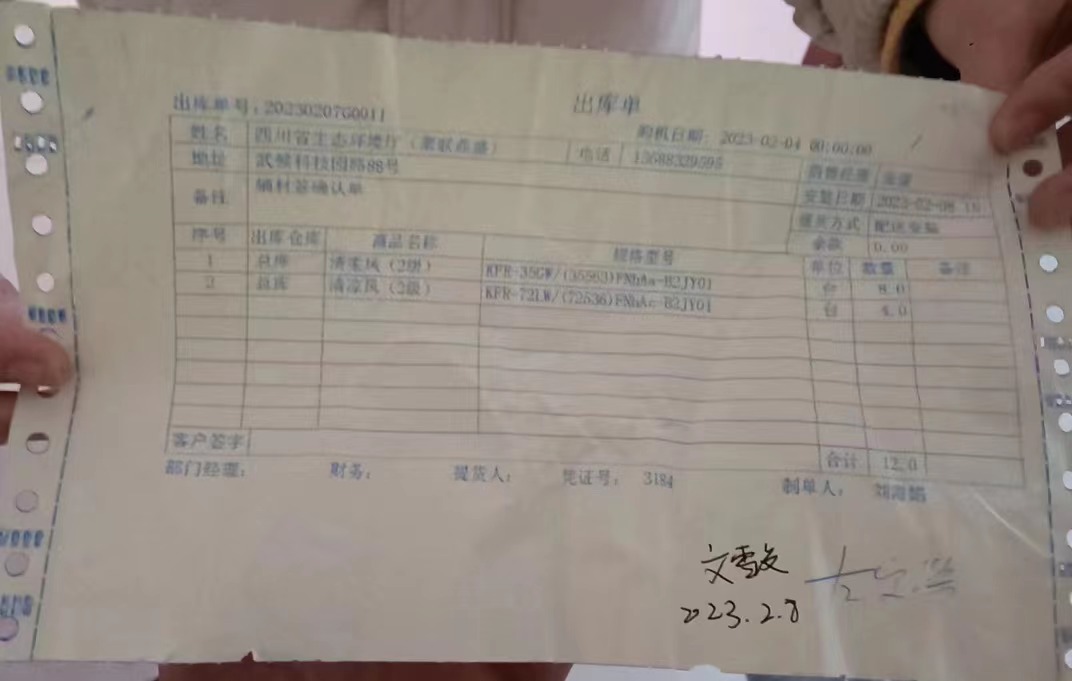 出库单
出库单号：20230207G0011 购机日期：2023-02-04 00:00:00
姓名 四川省生态环境厅 电话 13688329595
地址 武侯科技园路88号 销售经理
备注 辅材签确认单 安装日期 2023-02-08
提货方式 配送安装
余款 0.00
序号 出库仓库 商品名称 规格型号 单位 数量 备注
1 总库 清柔风（2级） KFR-35GW/(35563)FNhAa-B2JY01 台 8.0
2 总库 清凉风（2级） KFR-72LW/(72536)FNhAc-B2JY01 台 4.0
客户签字 合计 12.0
部门经理： 财务： 提货人： 凭证号： 3184 制单人：
2023.2.8